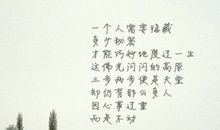 一个人需要隐藏
多少秘密
才能巧妙地度过一生
这佛光闪闪的高原
三步两步便是天堂
却仍有那么多人
因心事过重
而走不动